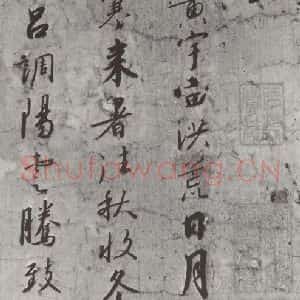 黄宇宙洪荒日月
寒来暑往秋收冬
吕調陽雲騰致
Shufawang.CN